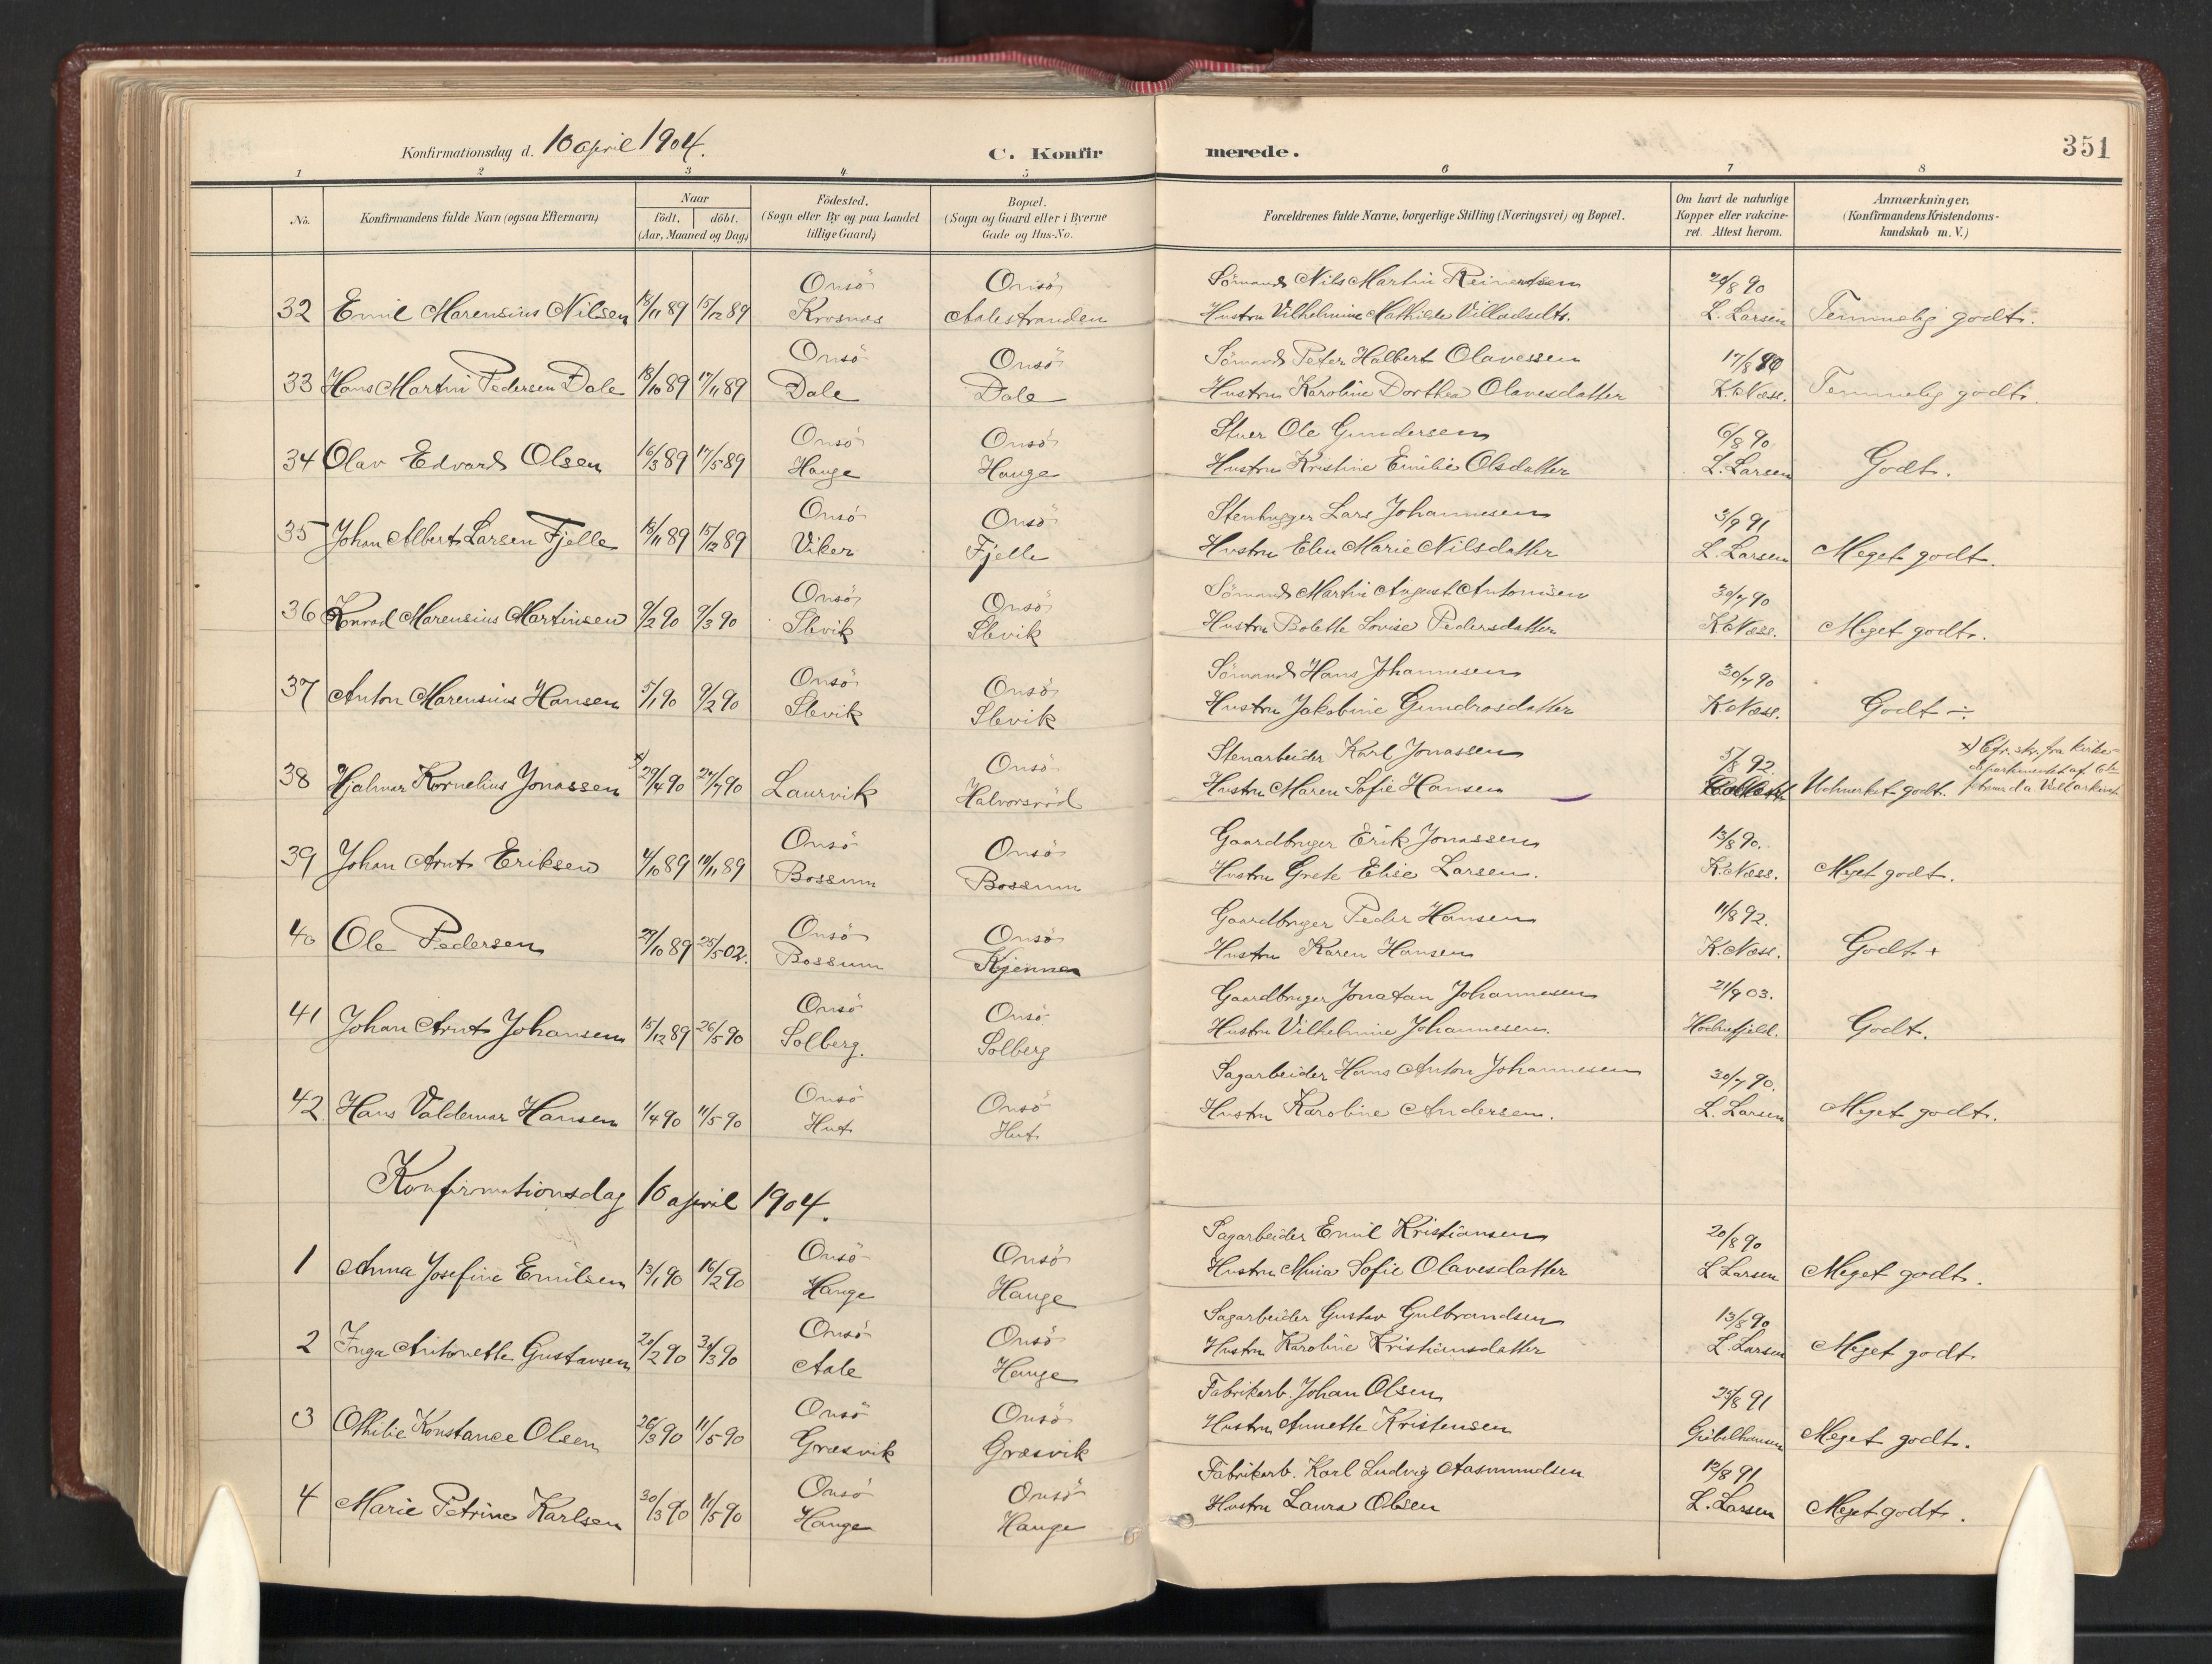 Konfirmationsdag d. 10 april 1904.
C. Konfirmerede.
351
1 2 3 4 5 6 7 8
No.
Konfirmandens fulde Navn (ogsaa Efternavn)
Naar
födt. döbt.
(Aar, Maaned og Dag)
Födested.
(Sogn eller By og paa Landet
tillige Gaard)
Bopæl.
(Sogn og Gaard eller i Byerne
Gade og Hus-No.
Forældrenes fulde Navne, borgerlige Stilling (Næringsvei) og Bopæl.
Om havt de naturlige
Kopper eller vakcine-
ret. Attest herom.
Anmærkninger,
(Konfirmandens Kristendoms-
kundskab m. V.)
Onsö Onsö Sömand Nils Martin Reinertsen 20/8 90
32 Emil Marensius Nilsen 18/11 89 15/12 89 Krosnæs Aalestranden Hustru Vilhelmine Mathilde Villadsdtr. L. Larsen Temmelig godt.
Onsö Onsö Sömand Peter Halbert Olavessen 17/8 90
33 Hans Martin Pedersen Dale 18/10 89 17/11 89 Dale Dale Hustru Karoline Dorthea Olavesdatter K. Næss. Temmelig godt.
Onsö Onsö Stuer Ole Gundersen 6/8 90
34 Olav Edvard Olsen 16/3 89 17/5 89 Hauge Hauge Hustru Kristine Emilie Olsdatter L. Larsen Godt.
Onsö Onsö Stenhugger Lars Johannesen 3/9 91
35 Johan Albert Larsen Fjelle 18/11 89 15/12 89 Viker Fjelle Hustru Elen Marie Nilsdatter L. Larsen Meget godt.
Onsö Onsö Sömand Martin August Antonisen 30/7 90
36 Konrad Marensius Martinsen 9/2 90 9/3 90 Slevik Slevik Hustru Bolette Lovise Pedersdatter K. Næss. Meget godt.
Onsö Onsö Sömand Hans Johannesen 30/7 90
37 Anton Marensius Hansen 5/1 90 9/2 90 Slevik Slevik Hustru Jakobine Gundrosdatter K. Næss. Godt ÷
Onsö Stenarbeider Karl Jonassen 5/8 92. x) Cfr. skr. fra Kirke-
38 Hjalmar Kornelius Jonassen x) 29/4 90 20/7 90 Laurvik Halvorsröd Hustru Maren Sofie Hansen Udmerket godt.
Onsö Onsö Gaardbruger Erik Jonassen 13/8 90.
39 Johan Arnt Eriksen 4/10 89 10/11 89 Bossum Bossum Hustru Grete Elise Larsen. K. Næss. Meget godt.
Onsö Onsö Gaardbruger Peder Hansen 11/8 92.
40 Ole Pedersen 29/10 89 25/5 02. Bossum Kjenner Hustru Karen Hansen K. Næss. Godt +
Onsö Onsö Gaardbruger Jonatan Johannesen 21/9 03.
41 Johan Arnt Johansen 15/12 89 26/5 90 Solberg. Solberg Hustru Vilhelmine Johannesen. Godt.
Onsö Onsö Sagarbeider Hans Anton Johannesen 30/7 90.
42. Hans Valdemar Hansen 1/4 90 11/5 90 Hut Hut Hustru Karoline Andersen. L. Larsen Meget godt.
Konfirmationsdag 10 april 1904.
Onsö Onsö Sagarbeider Emil Kristiansen 20/8 90
1 Anna Josefine Emilsen 13/1 90 16/2 90 Hauge Hauge Hustru Mina Sofie Olavesdatter L Larsen Meget godt.
Onsö Onsö Sagarbeider Gustav Gulbrandsen 13/8 90
2 Inga Antonette Gustavsen 20/2 90 30/3 90 Aale Hauge Hustru Karoline Kristiansdatter L. Larsen Meget godt
Onsö Onsö Fabrikarb. Johan Olsen 25/8 91
3 Othilie Konstance Olsen 26/3 90 11/5 90 Græsvik Græsvik Hustru Annette Kristensen Gribelhausen Meget godt.
Onsö Onsö Fabrikarb. Karl Ludvig Aasmundsen 12/8 91
4 Marie Petrine Karlsen 30/3 90 11/5 90 Hauge Hauge Hustru Laura Olsen L. Larsen Meget godt.